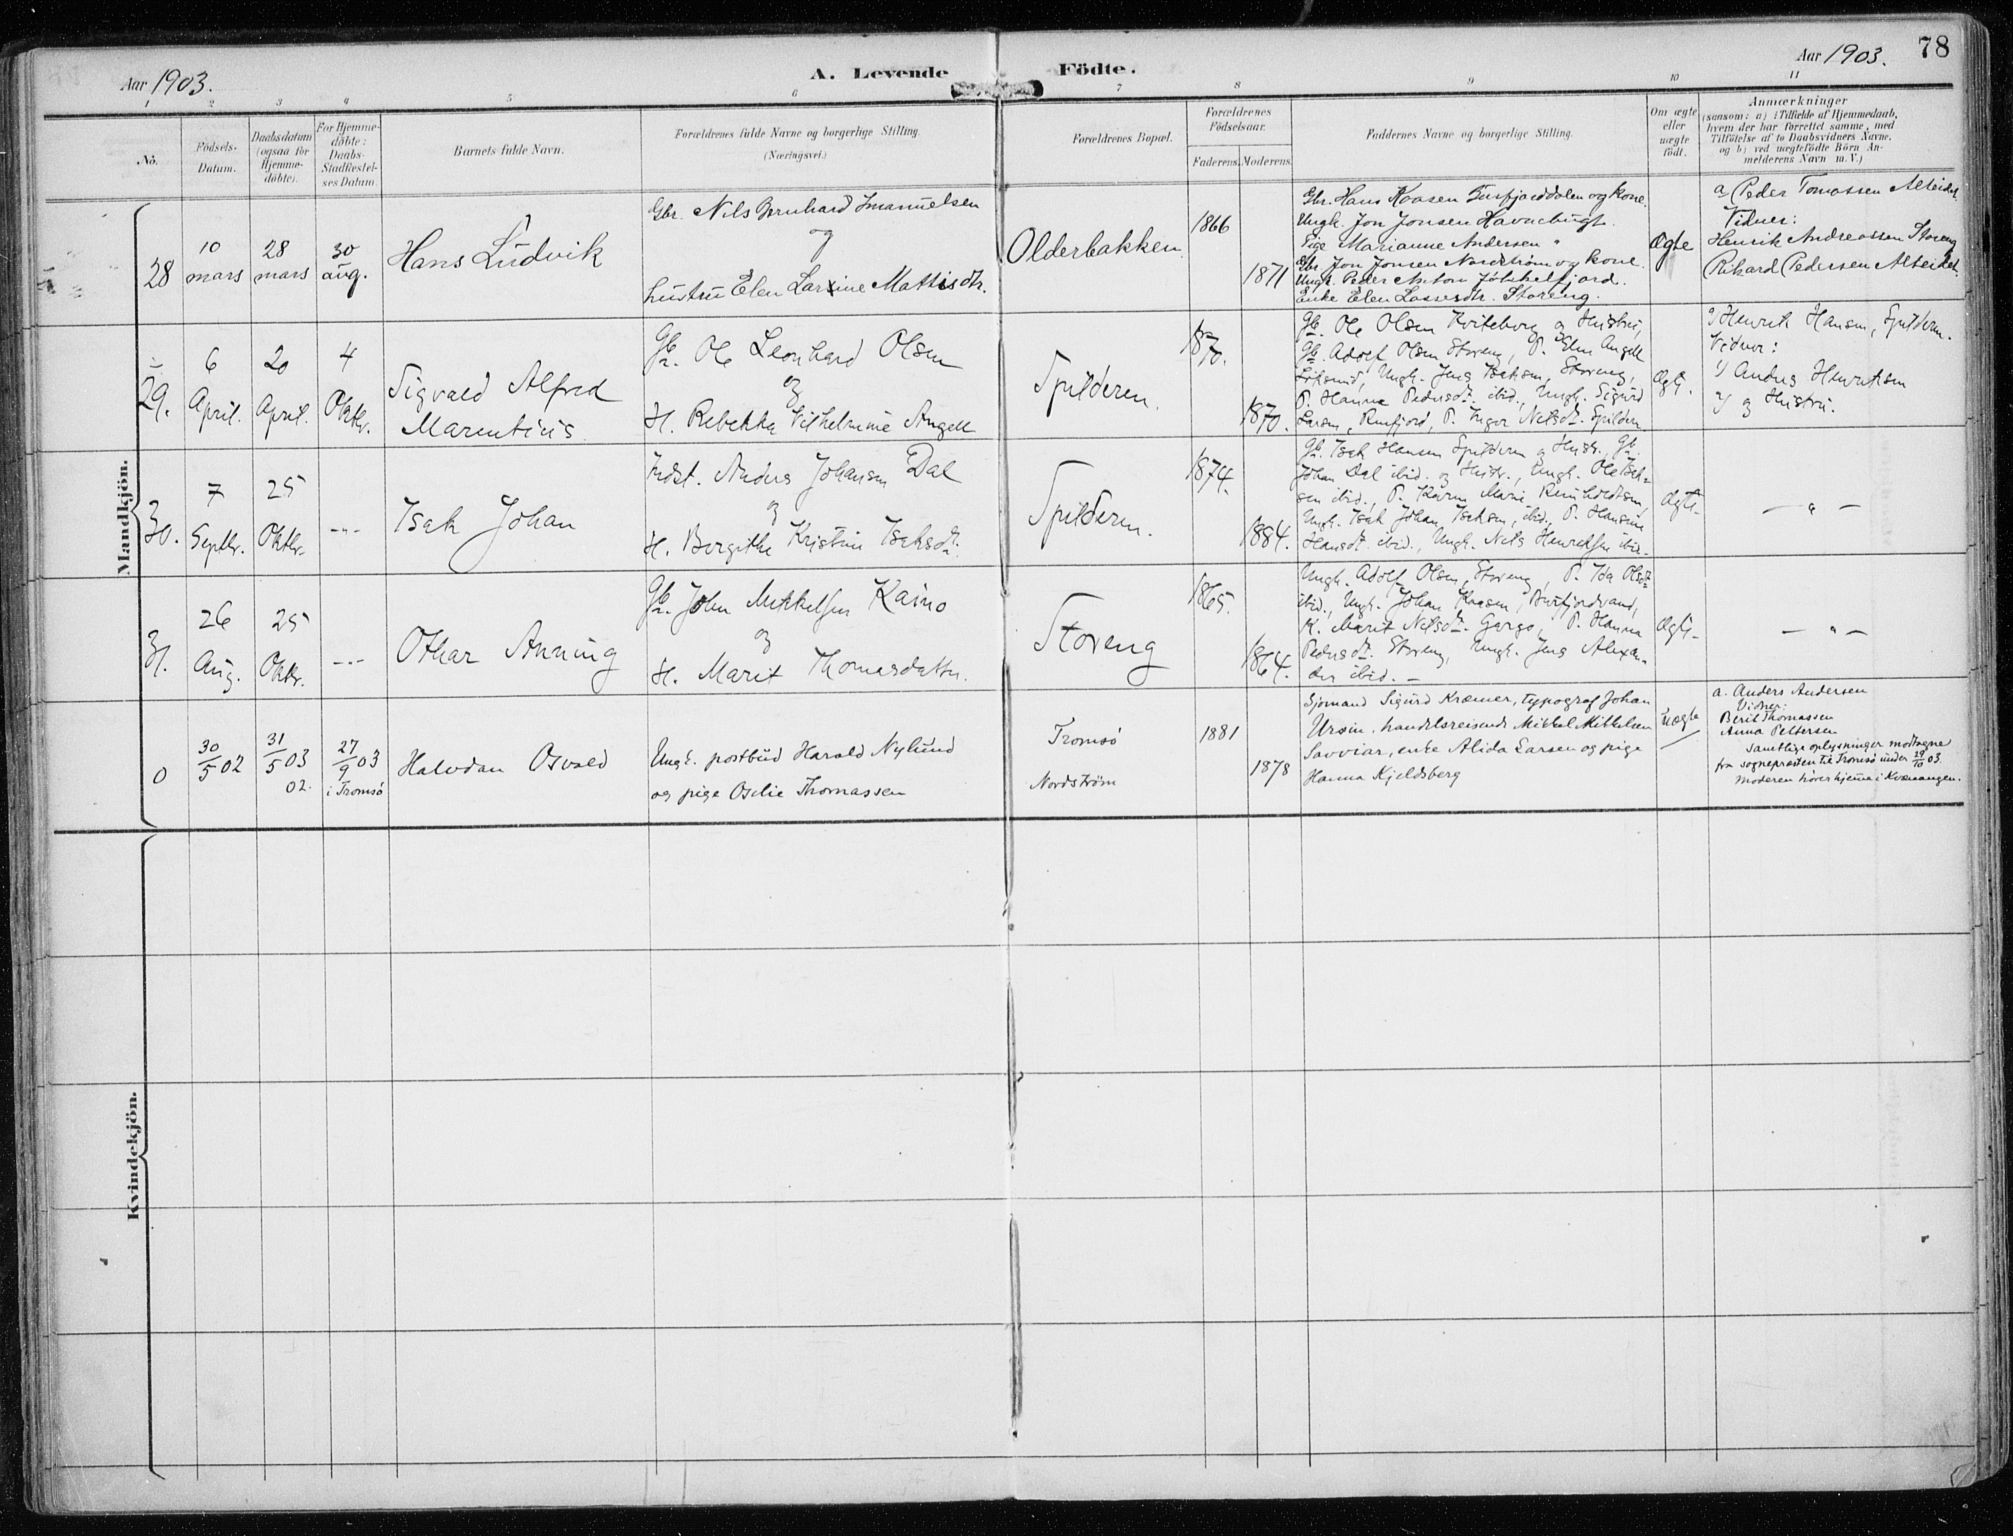 78
Aar 1903.
A. Levende Födte.
Aar 1903.
1 2 3 4 5 6 7 8 9 10 11
No.
Födsels-Datum.
Daabsdatum (ogsaa for Hjemme-döbte).
For Hjemme-döbte: Daabs-Stadfæstel-ses Datum.
Barnets fulde Navn.
Forældrenes fulde Navne og borgerlige Stilling.
(Næringsvei.)
Forældrenes Bopæl.
Forældrenes Födselsaar.
Faderens. Moderens.
Faddernes Navne og borgerlige Stilling.
Om ægte eller uægte födt.
Anmærkninger
(saasom: a) i Tilfælde af Hjemmedaab,
hvem der har forrettet samme, med
Tilföielse af to Daabsvidners Navne.
og b) ved uægtefödte Börn An-
melderens Navn m. V.)
Mandkjön.
28
10 mars
28 mars
30 aug.
Hans Ludvik
Gbr. Nils Bernhard Imanuelsen
og
hustru Elen Larsine Mattisdtr.
Olderbakken.
1866
1871
Gbr. Hans Kaasen Burfjorddalen og kone.
Ungk. Jon Jonsen Havnebugt.
Pige Marianne Andersen "
Gbr. Jon Jonsen Nordstrøm og kone.
Ungk. Peder Anton Jøkkelfjord.
Enke Elen Lassesdtr. Storeng.
Ægte
a, Peder Tomassen Alteidet.
Vidner:
Henrik Andreassen Storeng
Rikard Pedersen Alteidet.
29.
6 April.
20 April.
4 Oktbr.
Sigvald Alfred
Marentius
Gbr. Ole Leonhard Olsen
og
H. Rebekka Vilhelmine Angell
Spilderen.
1870.
1870.
Gb. Ole Olsen Kviteberg og Hustru,
Gb. Adolf Olsen Storeng, P. Elen Angell
Ungk. Jens Isaksen, Storeng,
P. Hanna Pedersdt. ibid., Ungk. Sigurd
Larsen, P. Inger Nilsdt. Spilderen
Ægt.
Henrik Hansen, Spilderen.
Vidner:
Anders Henriksen
og Hustru.
30.
7 Septbr.
25 Oktbr.
---
Isak Johan
Indst. Anders Johansen Dal
og
H. Bergithe Kristine Isaksdt.
Spilderen.
1874.
1884.
Gb. Isak Hansen Spilderen og Hustr., Gb.
Johan Dal ibid. og Hustr., Ungk. Ole Isak-
sen ibid., P. Karen Marie Reinholdtsen,
Ungk. Isak Johan Isaksen, ibid., P. Hansine
Hansdt. ibid., Ungk. Nils Henriksen ibid.
Ægt.
— " —
31.
26 Aug.
25 Oktbr.
---
Othar Anning
Gb. John Mikkelsen Kaino
og
H. Marit Thomasdatter.
Storeng
1865.
1864.
Ungk. Adolf Olsen, Storeng, P. Ida Olsdt.
ibid., Ungk. Johan Kaasen, Burfjordvand,
K. Marit Nilsdt. Gargo, P. Hanna
Pedersdt. Storeng, Ungk. Jens Alexan-
der ibid. —
Ægt.
— " —
0
30/5 02
31/5 03
02.
27/9 03
i Tromsø
Halvdan Osvald
Ungk. postbud Harald Nylund
og pige Oselie Thomassen
Tromsø
Nordstrøm
1881
1878
Sjömand Sigurd Kræmer, typograf Johan
Ursin, handelsreisende Mikkel Mikkelsen
Savviar, enke Alida Larsen og pige
Hanna Kjeldsberg
uægte
a. Anders Andersen
Vidner:
Berit Thomassen
Anna Pettersen
samtlige oplysninger modtagne
fra sognepræsten til Tromsö under 29/10 03.
moderen hører hjemme i Kvænangen.
Kvindekjön.